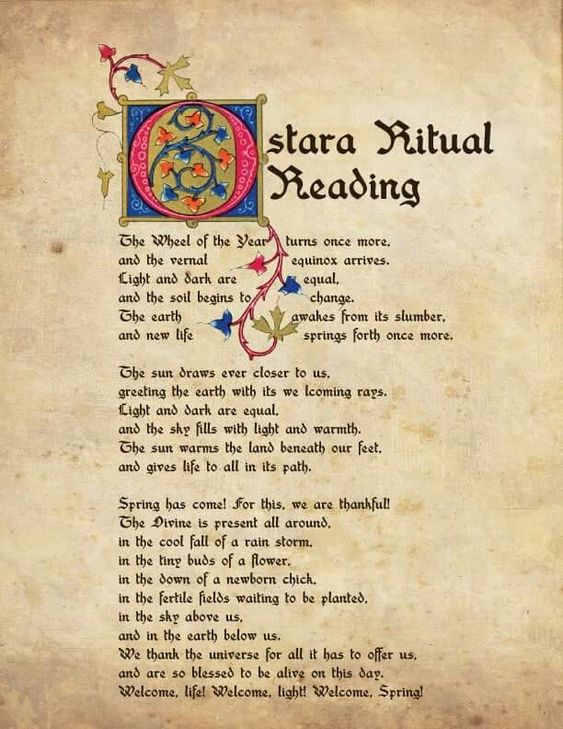 Ostara Ritual
Reading
The Wheel of the Year turns once more,
and the vernal equinox arrives.
Light and dark are equal,
and the soil begins to change.
The earth awakes from its slumber,
and new life springs forth once more.
The sun draws ever closer to us,
greeting the earth with its we lcoming rays.
Light and dark are equal,
and the sky fills with light and warmth.
The sun warms the land beneath our feet,
and gives life to all in its path.
Spring has come! For this, we are thankful!
The Divine is present all around,
in the cool fall of a rain storm,
in the tiny buds of a flower,
in the down of a newborn chick,
in the fertile fields waiting to be planted,
in the sky above us,
and in the earth below us.
We thank the universe for all it has to offer us,
and are so blessed to be alive on this day.
Welcome, life! Welcome, light! Welcome, Spring!